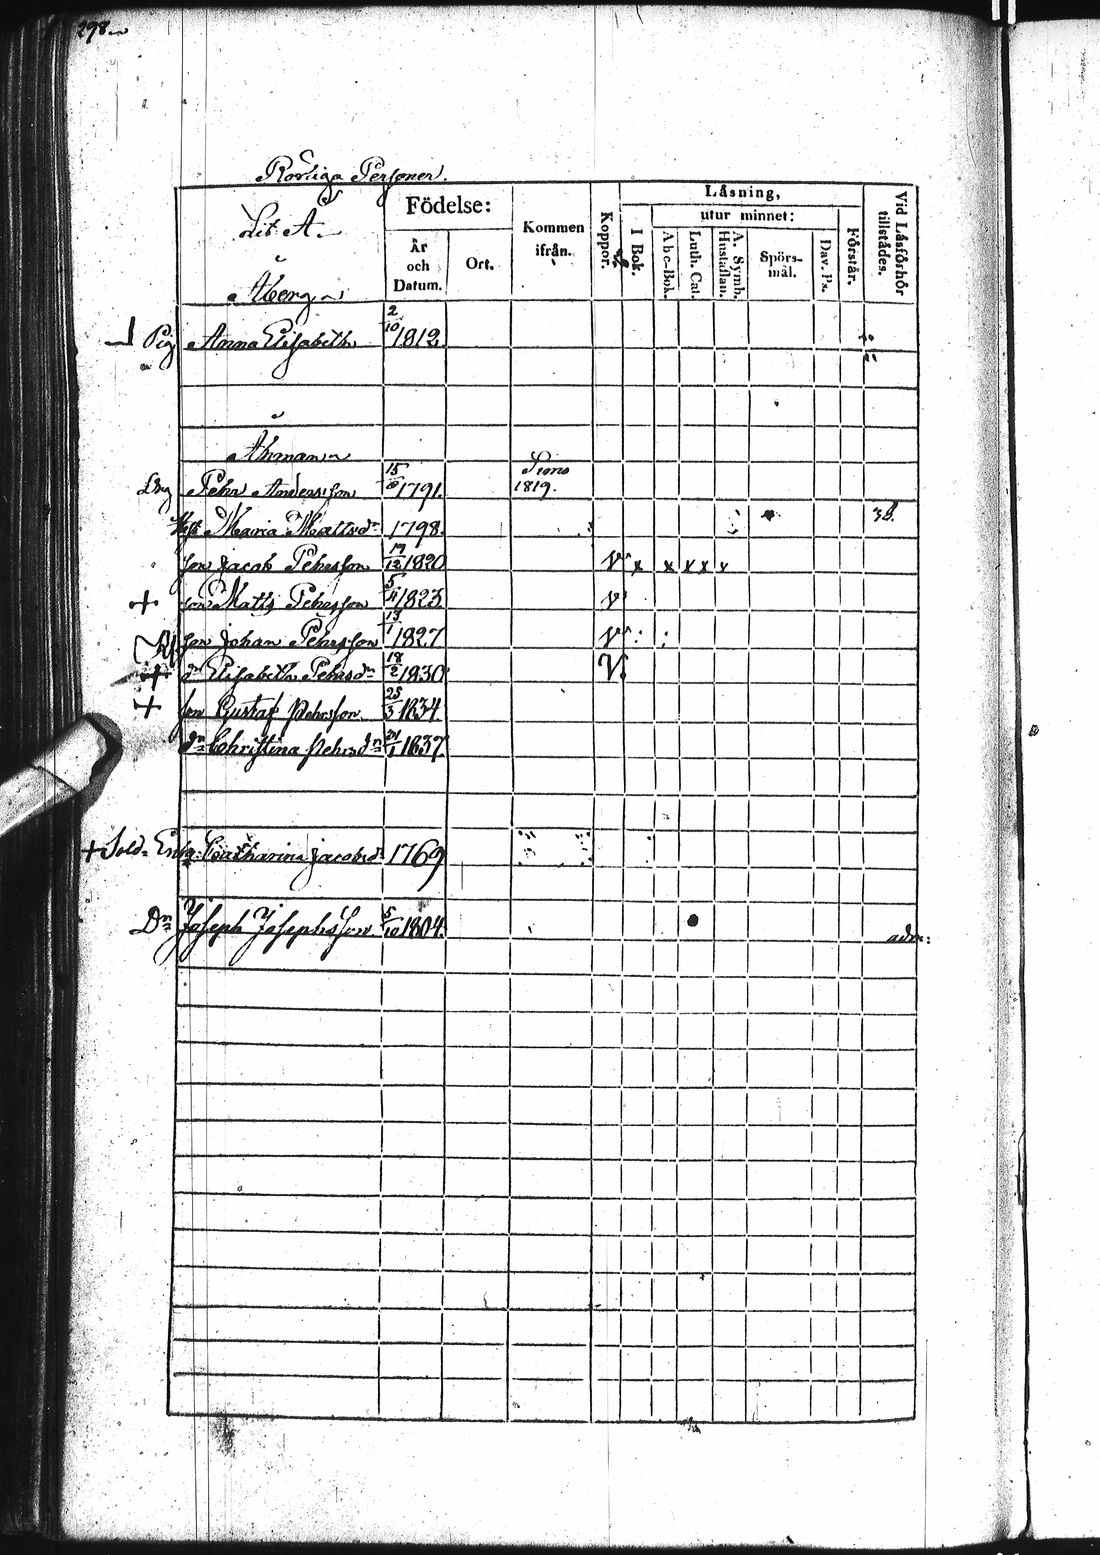 298.
Rörliga Personer.
Litt Å.
Födelse:
År och Datum.
Ort.
Kommen ifrån.
Koppor.
Läsning,
I Bok.
utur minnet:
Abc-Bok.
Luth. Cat.
A. Symb. Hustaflan.
Spörs-mål.
Dav. Ps.
Förstår.
Vid Läsförhör tillstädes.
Åberg
Pig Anna Elisabeth 2/10 1812
Åhman
Pehr Andersson 15/8 1791. Simo 1819.
Maria Mattsdr 1798. 38.
son Jacob Pehrsson 17/12 1820 V x x x x
+ son Matts Pehrsson 5/11 1823 V
son Johan Pehrsson 13/1 1827 V
+ dr Elisabeth Pehrsdr 18/2 1830 V
+ son Gustaf Pehrsson 25/3 1834
dr Christina Pehrsdr 21/1 1837
+ Sold. Enk. Catharina Jacobsdr 1769
Dn Joseph Josephsson 5/10 1804. adm: